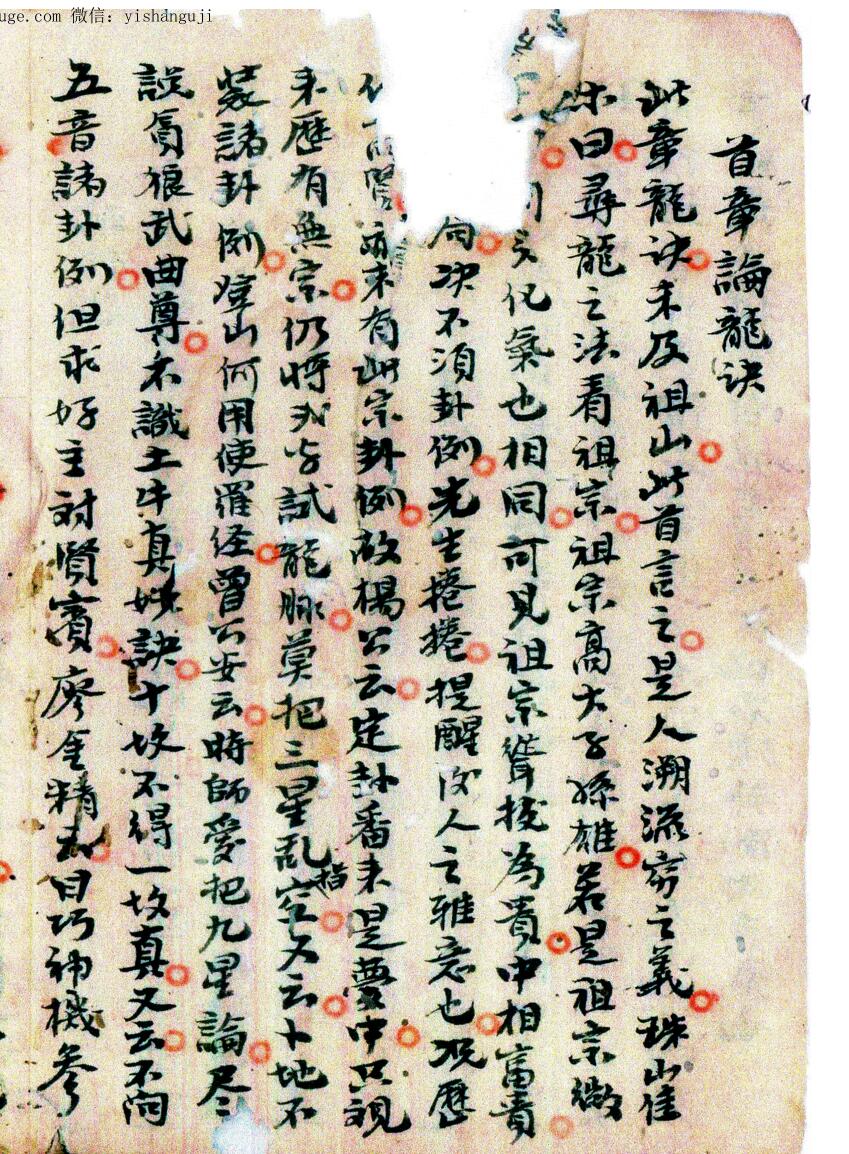 uge.com 微信：yishanguji
首章論龍訣
此章龍訣未及祖山此首言之是人溯流窮之義珠山佳
曰尋龍之法看祖宗祖宗高大子孫雄若是祖宗微
化氣也相同可見祖宗聳拔為貴中相富責
向决不須卦例先生捲捲提醒後人之雅意也况歷
亦未有此宗卦例故楊公云定卦番来是夢中只視
来歷有無宗仍將我字試龍脉莫把三星乱指空又云卜地不
裝諸卦例登山何用使羅经曾公安云時師愛把九星論尽
説貪狼武曲尊不識土牛真妙訣十坟不得一坟真又云不问
五音諸卦例但求好主对賢賓廖金精云目巧神機参